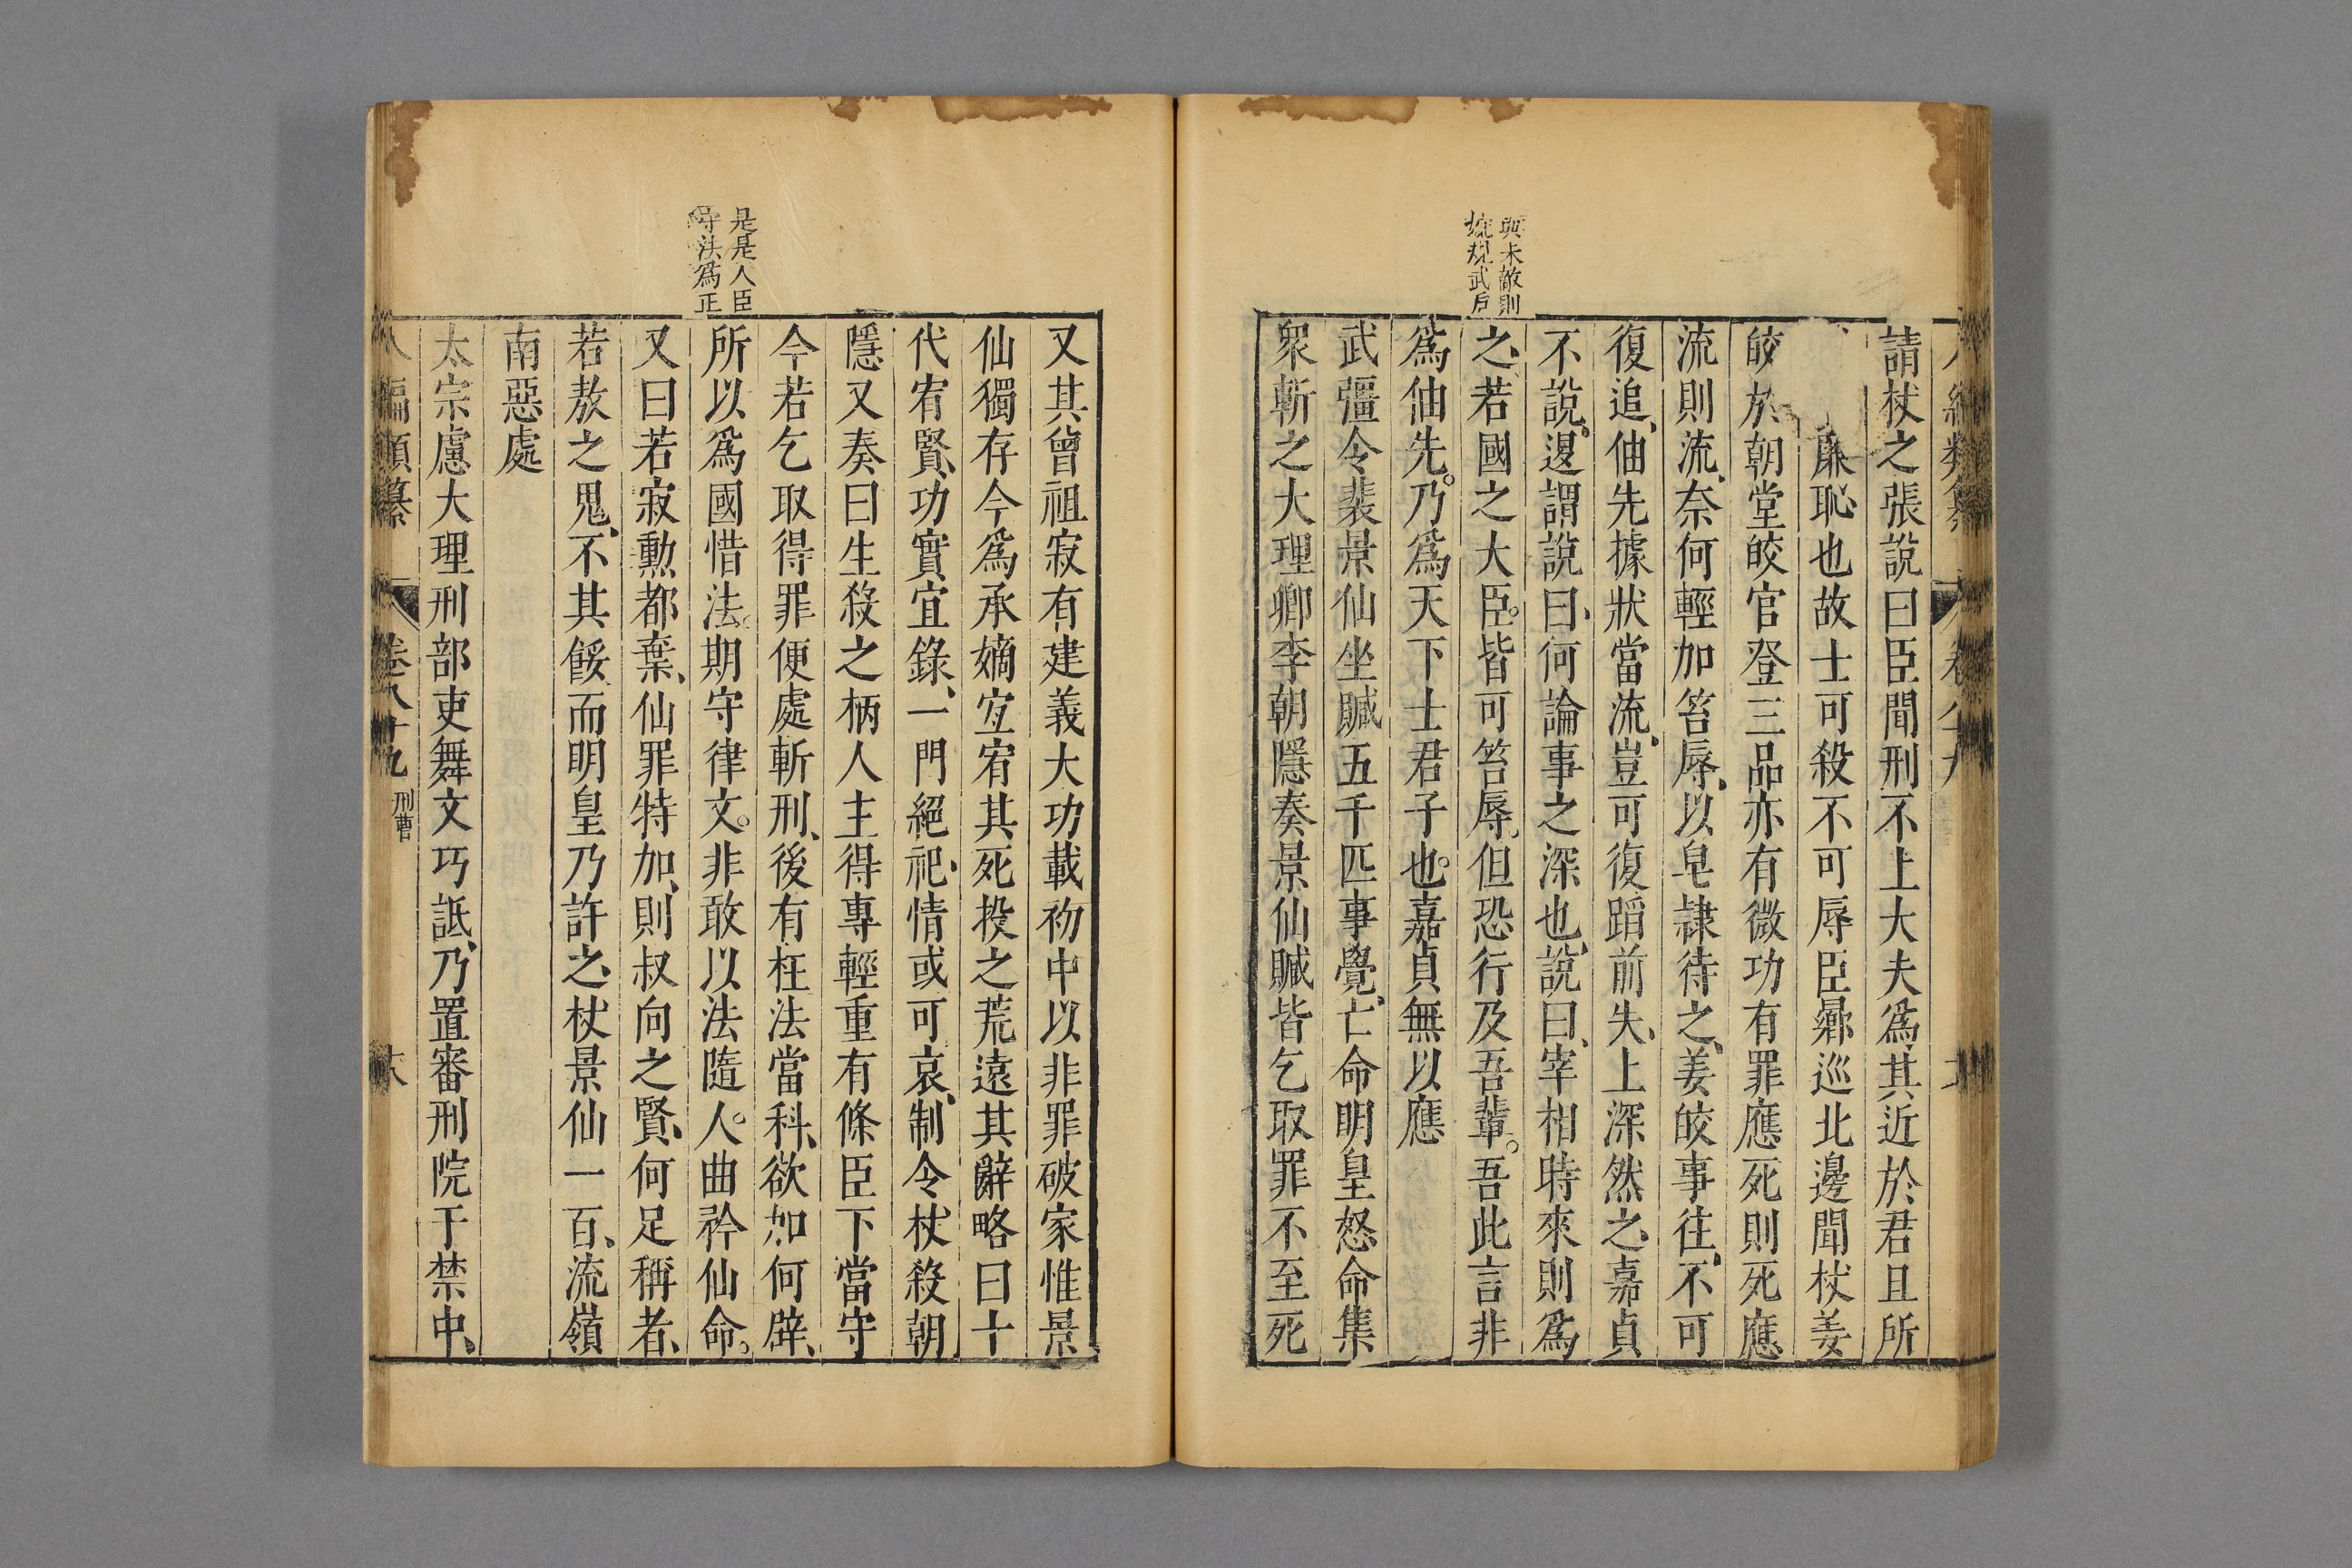 請杖之張說曰臣聞刑不上大夫爲其近於君且所
廉恥也故士可殺不可辱臣曏巡北邊聞杖姜
皎於朝堂皎官登三品亦有微功有罪應死則死應
流則流、奈何輕加笞辱、以皂隷待之、姜皎事往、不可
復追、伷先據狀當流、豈可復蹈前失、上深然之、嘉貞
不說。退謂說曰、何論事之深也、說曰、宰相時來則爲
之、若國之大臣。皆可笞辱。但恐行及吾輩。吾此言非
爲伷先。乃爲天下士君子也。嘉貞無以應
武彊令裴景仙坐贓五千匹事覺、亡命明皇怒命集
衆斬之大理卿李朝隱奏景仙贓皆乞取罪不至死
又其曾祖寂有建義大功載初中以非罪破家惟景
仙獨存今爲承嫡宜宥其死投之荒遠其辭略曰十
代宥賢、功實宜錄、一門絕祀、情或可哀、制令杖殺朝
隱又奏曰生殺之柄人主得專輕重有條臣下當守
今若乞取得罪便處斬刑、後有枉法當科、欲加何辟、
所以爲國惜法。期守律文。非敢以法隨人。曲矜仙命。
又曰若寂勲都棄、仙罪特加、則叔向之賢、何足稱者、
若敖之鬼、不其餒而明皇乃許之杖景仙一百、流嶺
南惡處
太宗慮大理刑部吏舞文巧詆、乃置審刑院于禁中、
八編類纂 卷八十九 刑曹 六
是是人臣
守法爲正